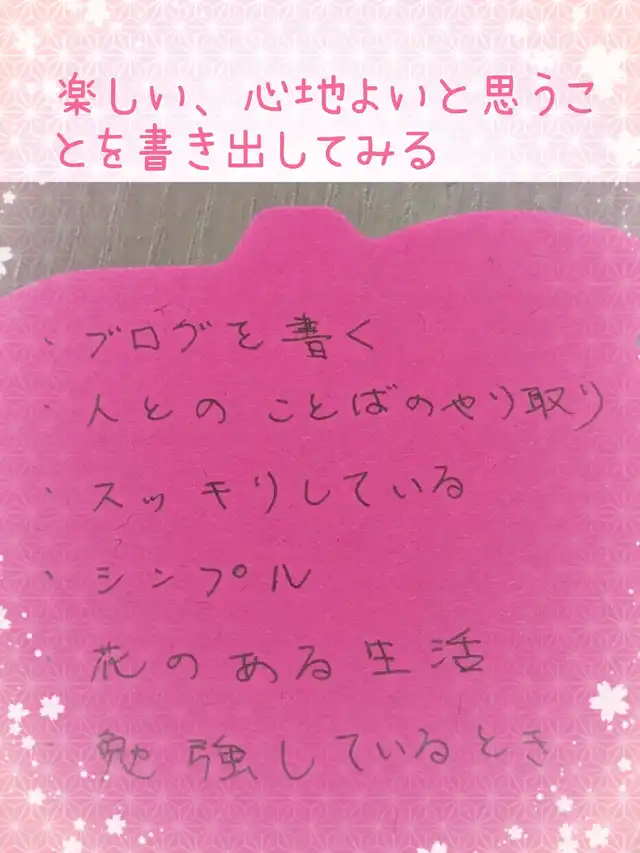 楽しい、心地よいと思うこ
とを書き出してみる
・ブログを書く
・人とのことばのやり取り
・スッキリしている
・シンプル
・花のある生活
・勉強しているとき